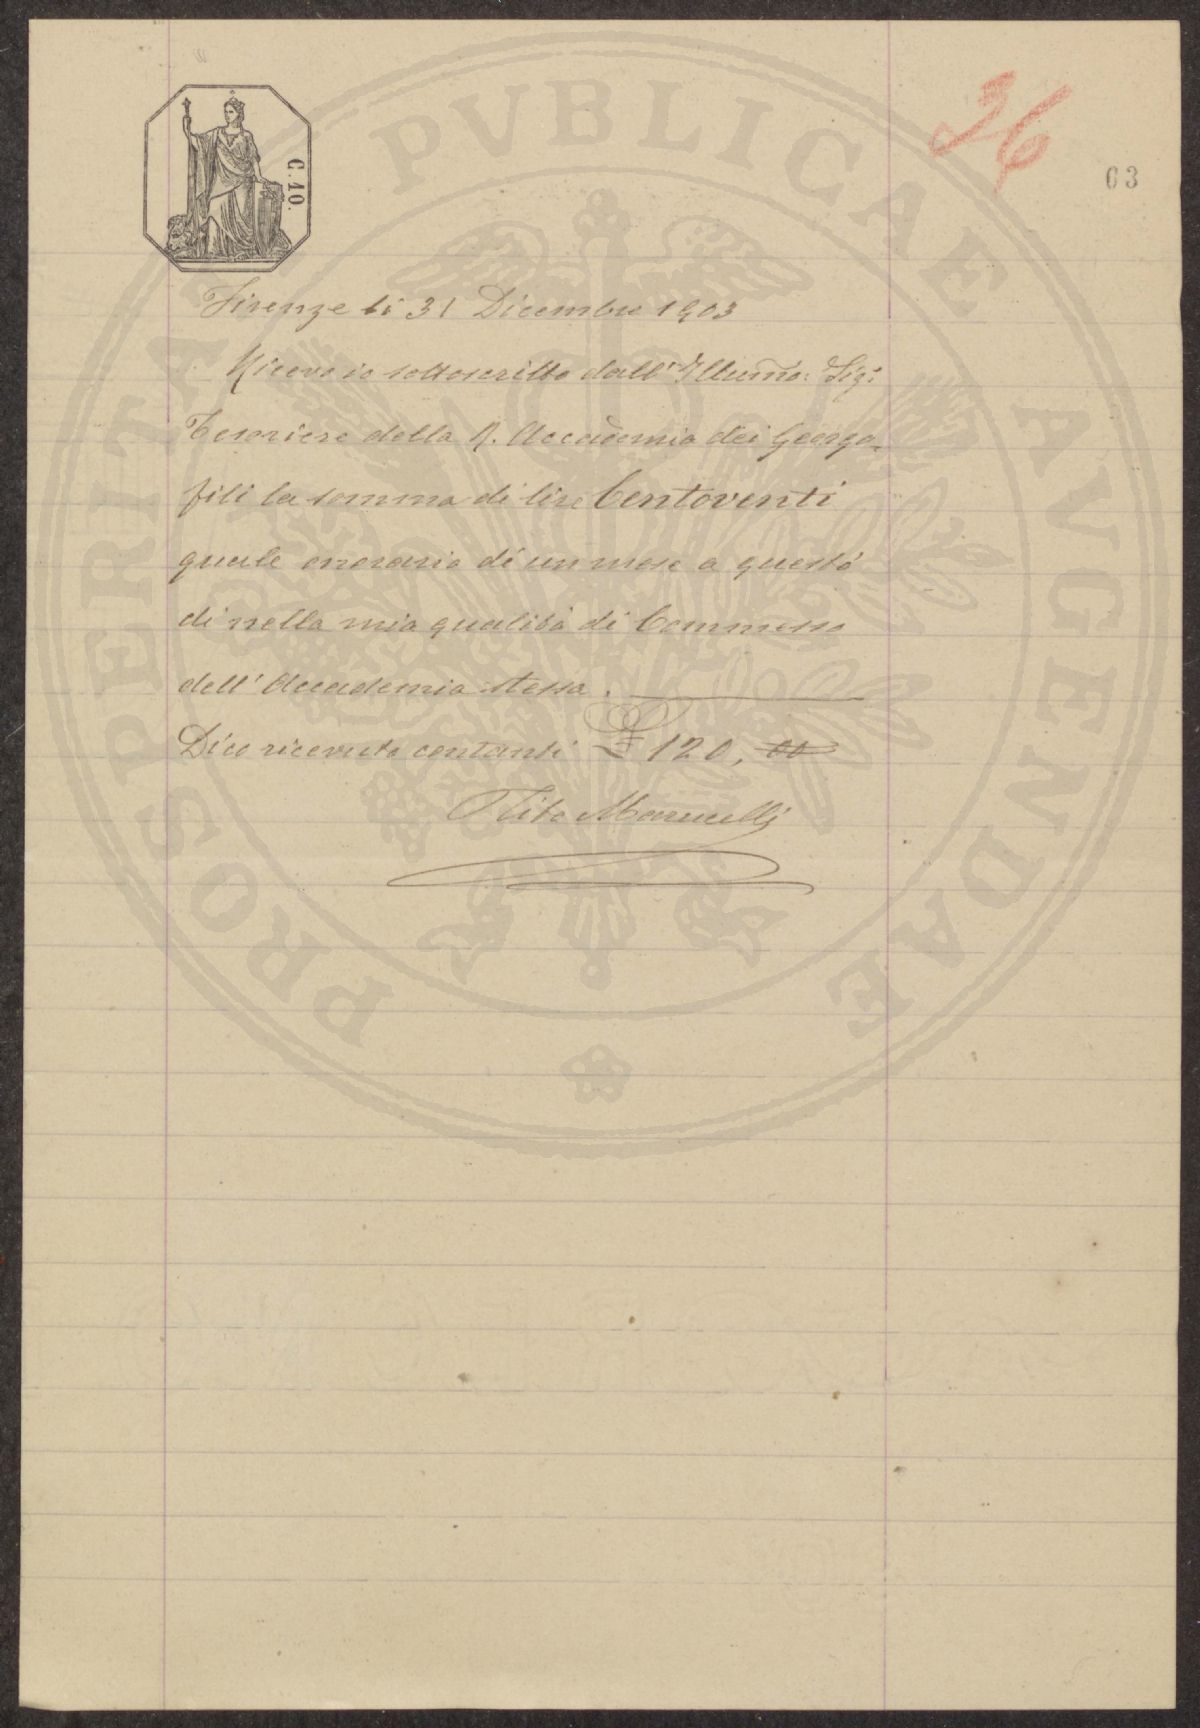 C. 10.
36
63
Firenze li 31 Dicembre 1903
Ricevo io sottoscritto dall' Illumo: Sigr
Tesoriere della R. Accademia dei Georgo-
fili la somma di lire Centoventi
quale onorario di un mese a questo
di nella mia qualità di Commesso
dell' Accademia stessa.
Dico ricevute contanti £ 120, 00
Tito Marucelli
PROSPERITATI PVBLICAE AVGENDAE